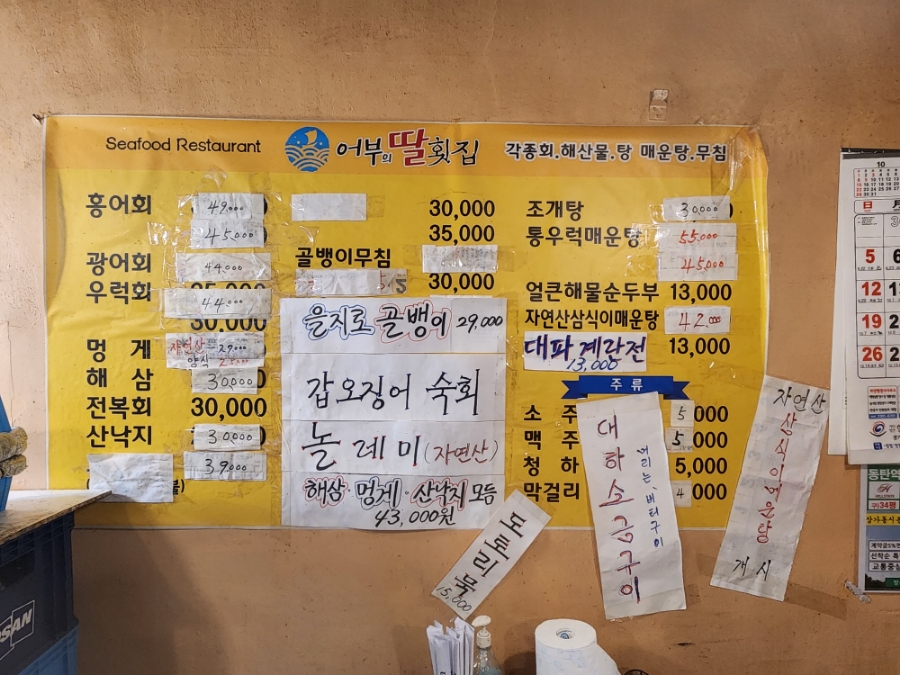 Seafood Restaurant
어부의딸횟집
각종회.해산물.탕 매운탕.무침
홍어회 49.000
45.000
광어회 44.000
우럭회
44.000
30,000
멍게 자연산 29.000
양식
해삼 30.000
전복회 30,000
산낙지 30.000
39.000
30,000
35,000
골뱅이무침
30,000
을지로 골뱅이 29.000
갑오징어 숙회
놀레미 (자연산)
해삼·멍게·산낙지 모듬
43,000원
조개탕 30.000
통우럭매운탕 55.000
45.000
얼큰해물순두부 13,000
자연산삼식이매운탕 42.000
대파계란전 13,000
13,000
주류
소주 5,000
맥주 5,000
청하 5,000
막걸리 4,000
도토리묵
15,000
대하소금구이
머리는 버터구이
자연산
삼식이매운탕
개시
10
5
12
19
26
동탄역